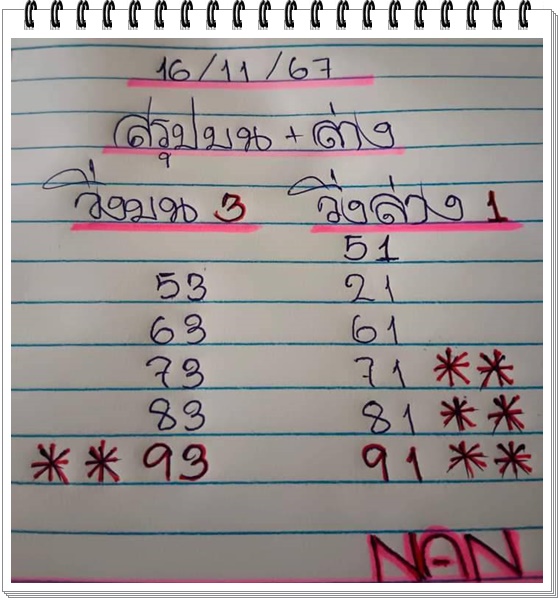 16/11/67
สรุปบน + ล่าง
วิ่งบน 3 วิ่งล่าง 1
51
53 21
63 61
73 71 **
83 81 **
** 93 91 **
NAN